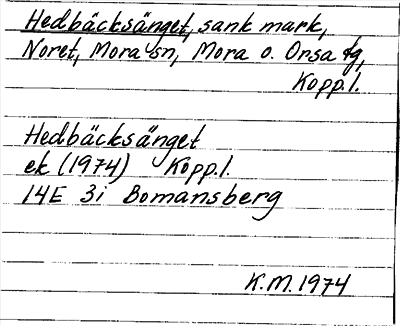 Hedbäcksänget, sank mark,
Noret, Mora sn, Mora o. Orsa tg,
Kopp.l.
Hedbäcksänget
ek (1974) Kopp.l.
14E 3i Bomansberg
K.M. 1974